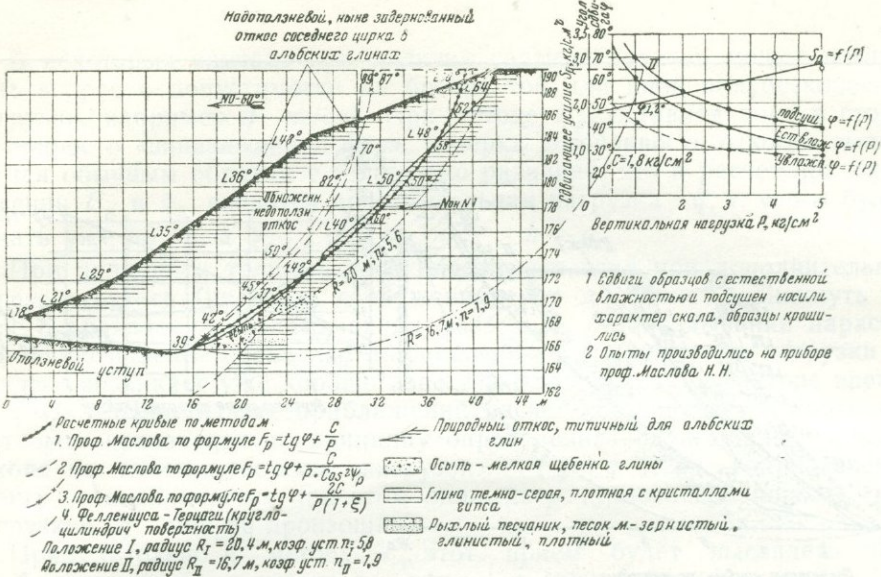 Надоползневой, ныне задернованный
откос соседнего цирка в
альбских глинах
NO-60°
89° 87°
∟64°
52°
∟48°
∟48°
58°
70°
∟36°
82°
∟50°
50°
Обнаженн.
недоползн
откос
∟40°
∟35°
50°
45°
∟42°
37°
∟29°
∟21°
∟18°
42°
39°
R=20 м, n=5,6
R=16,7м, n=1,9
Оползневой уступ
190
188
186
184
182
180
178
176
174
172
170
168
166
164
162
0 4 8 12 16 20 24 28 32 36 40 44 м
Сдвигающее усилие Sр, кг/см²
Угол
сдвига φ
3,5 80°
3,0 70°
60°
2,0 50°
40°
1,0 30°
20°
II
Sр=f(P)
подсуш φ=f(P)
Ест влаж φ=f(P)
увлажн φ=f(P)
C=1,8 кг/см²
0 1 2 3 4 5
Вертикальная нагрузка P, кг/см²
1 Сдвиги образцов с естественной
влажностью и подсушен носили
характер скола, образцы кроши-
лись
2 Опыты производились на приборе
проф. Маслова Н. Н.
Расчетные кривые по методам
1. Проф. Маслова по формуле Fр=tgφ+C/P
2 Проф. Маслова по формуле Fр=tgφ+C/(P•Cos²Ψр)
3. Проф. Маслова по формуле Fр=tgφ+2C/(P(1+ξ))
4. Феллениуса-Терцаги (кругло-
цилиндрич поверхность)
Положение I, радиус R_I=20,4 м, коэф уст n_I 5,8
Положение II, радиус R_II=16,7 м, коэф уст n_II=1,9
Природный откос, типичный для альбских
глин
Осыпь - мелкая щебенка глины
Глина темно-серая, плотная с кристаллами
гипса
Рыхлый песчаник, песок м-зернистый,
глинистый, плотный